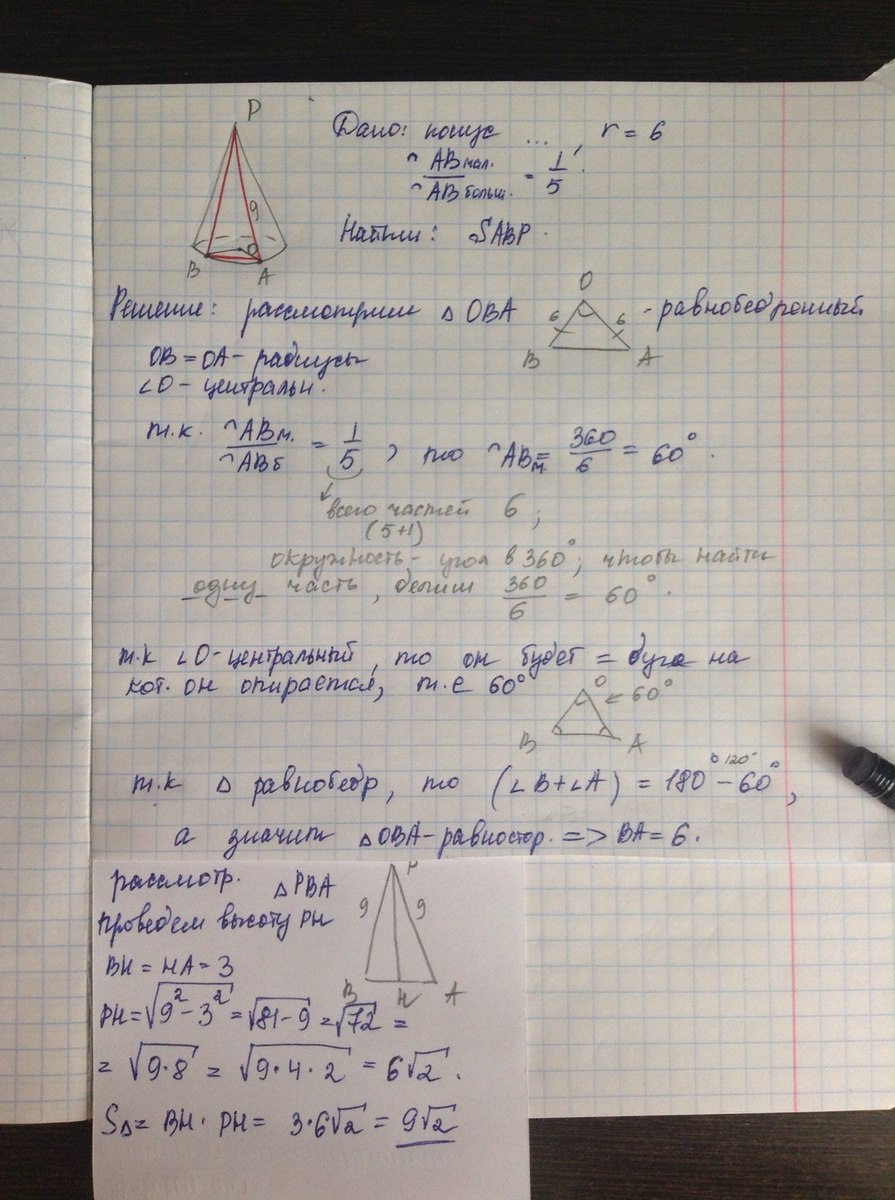 P
9
O
B
A
Дано: конус ... , r = 6
◠ABмал. / ◠ABбольш. = 1/5
Найти: SABP.
Решение: рассмотрим △OBA
O
6
6
B
A
- равнобедренный
OB = OA - радиусы
∠O - центральн.
т.к. ◠ABм. / ◠ABб = 1/5 , то ◠ABм = 360/6 = 60°.
всего частей 6 ;
(5+1)
окружность - угол в 360° ; чтобы найти
одну часть, делим 360/6 = 60°.
т.к ∠O-центральный, то он будет = дуге на
кот. он опирается, т.е 60°
O
60°
B
A
т.к △ равнобедр, то (∠B+∠A) = 180° - 60°,
120°
а значит △OBA-равностор. => BA = 6.
рассмотр. △PBA
P
проведем высоту PH
9
9
B
H
A
BH = HA = 3
PH = √9² - 3² = √81-9 = √72 =
= √9·8 = √9·4·2 = 6√2.
S△ = BH · PH = 3·6√2 = 9√2